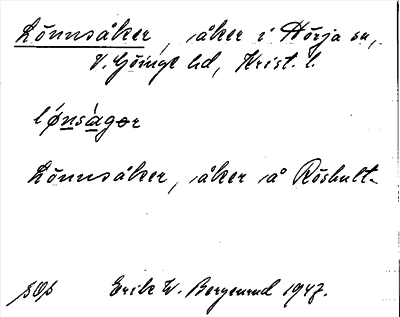 Lönnsåker, åker i Hörja sn,
V. Göinge hd, Krist. l.
lǿnságer
Lönnsåker, åker å Röshult.
Erik W. Borgenrud 1947.